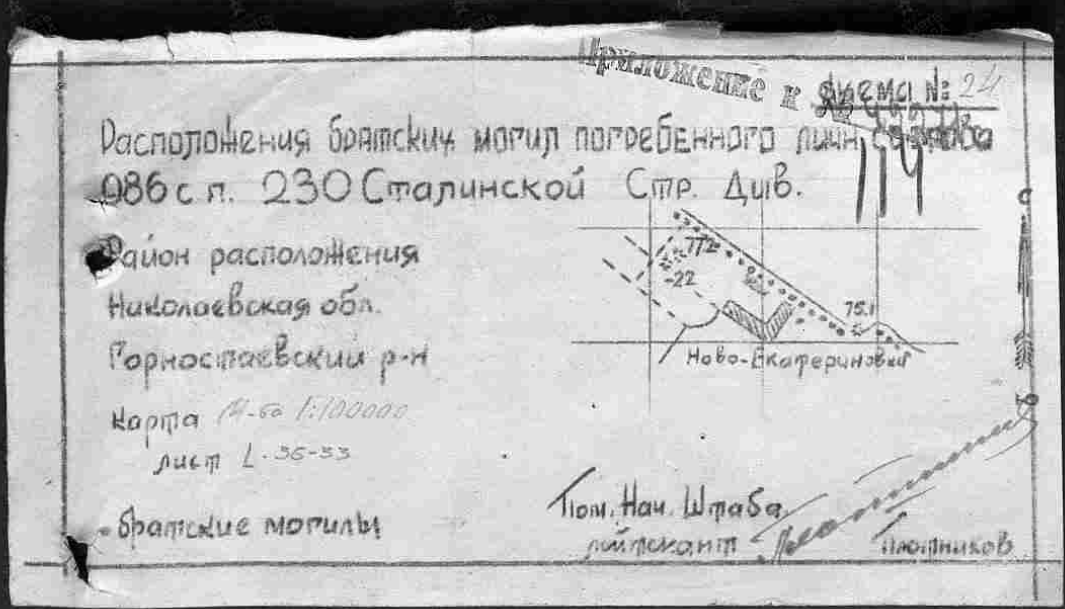 Приложение к №
Схема №: 24
1194
Расположения братских могил погребенного личн состава
986 с.п. 230 Сталинской Стр. Див.
Район расположения
Николаевская обл.
Горностаевский р-н
Карта М-ба 1:100000
лист L-36-33
- братские могилы
С
77.2
-22
75.1
Ново-Екатериновка
Ю
Пом. Нач. Штаба
лейтенант
Плотников